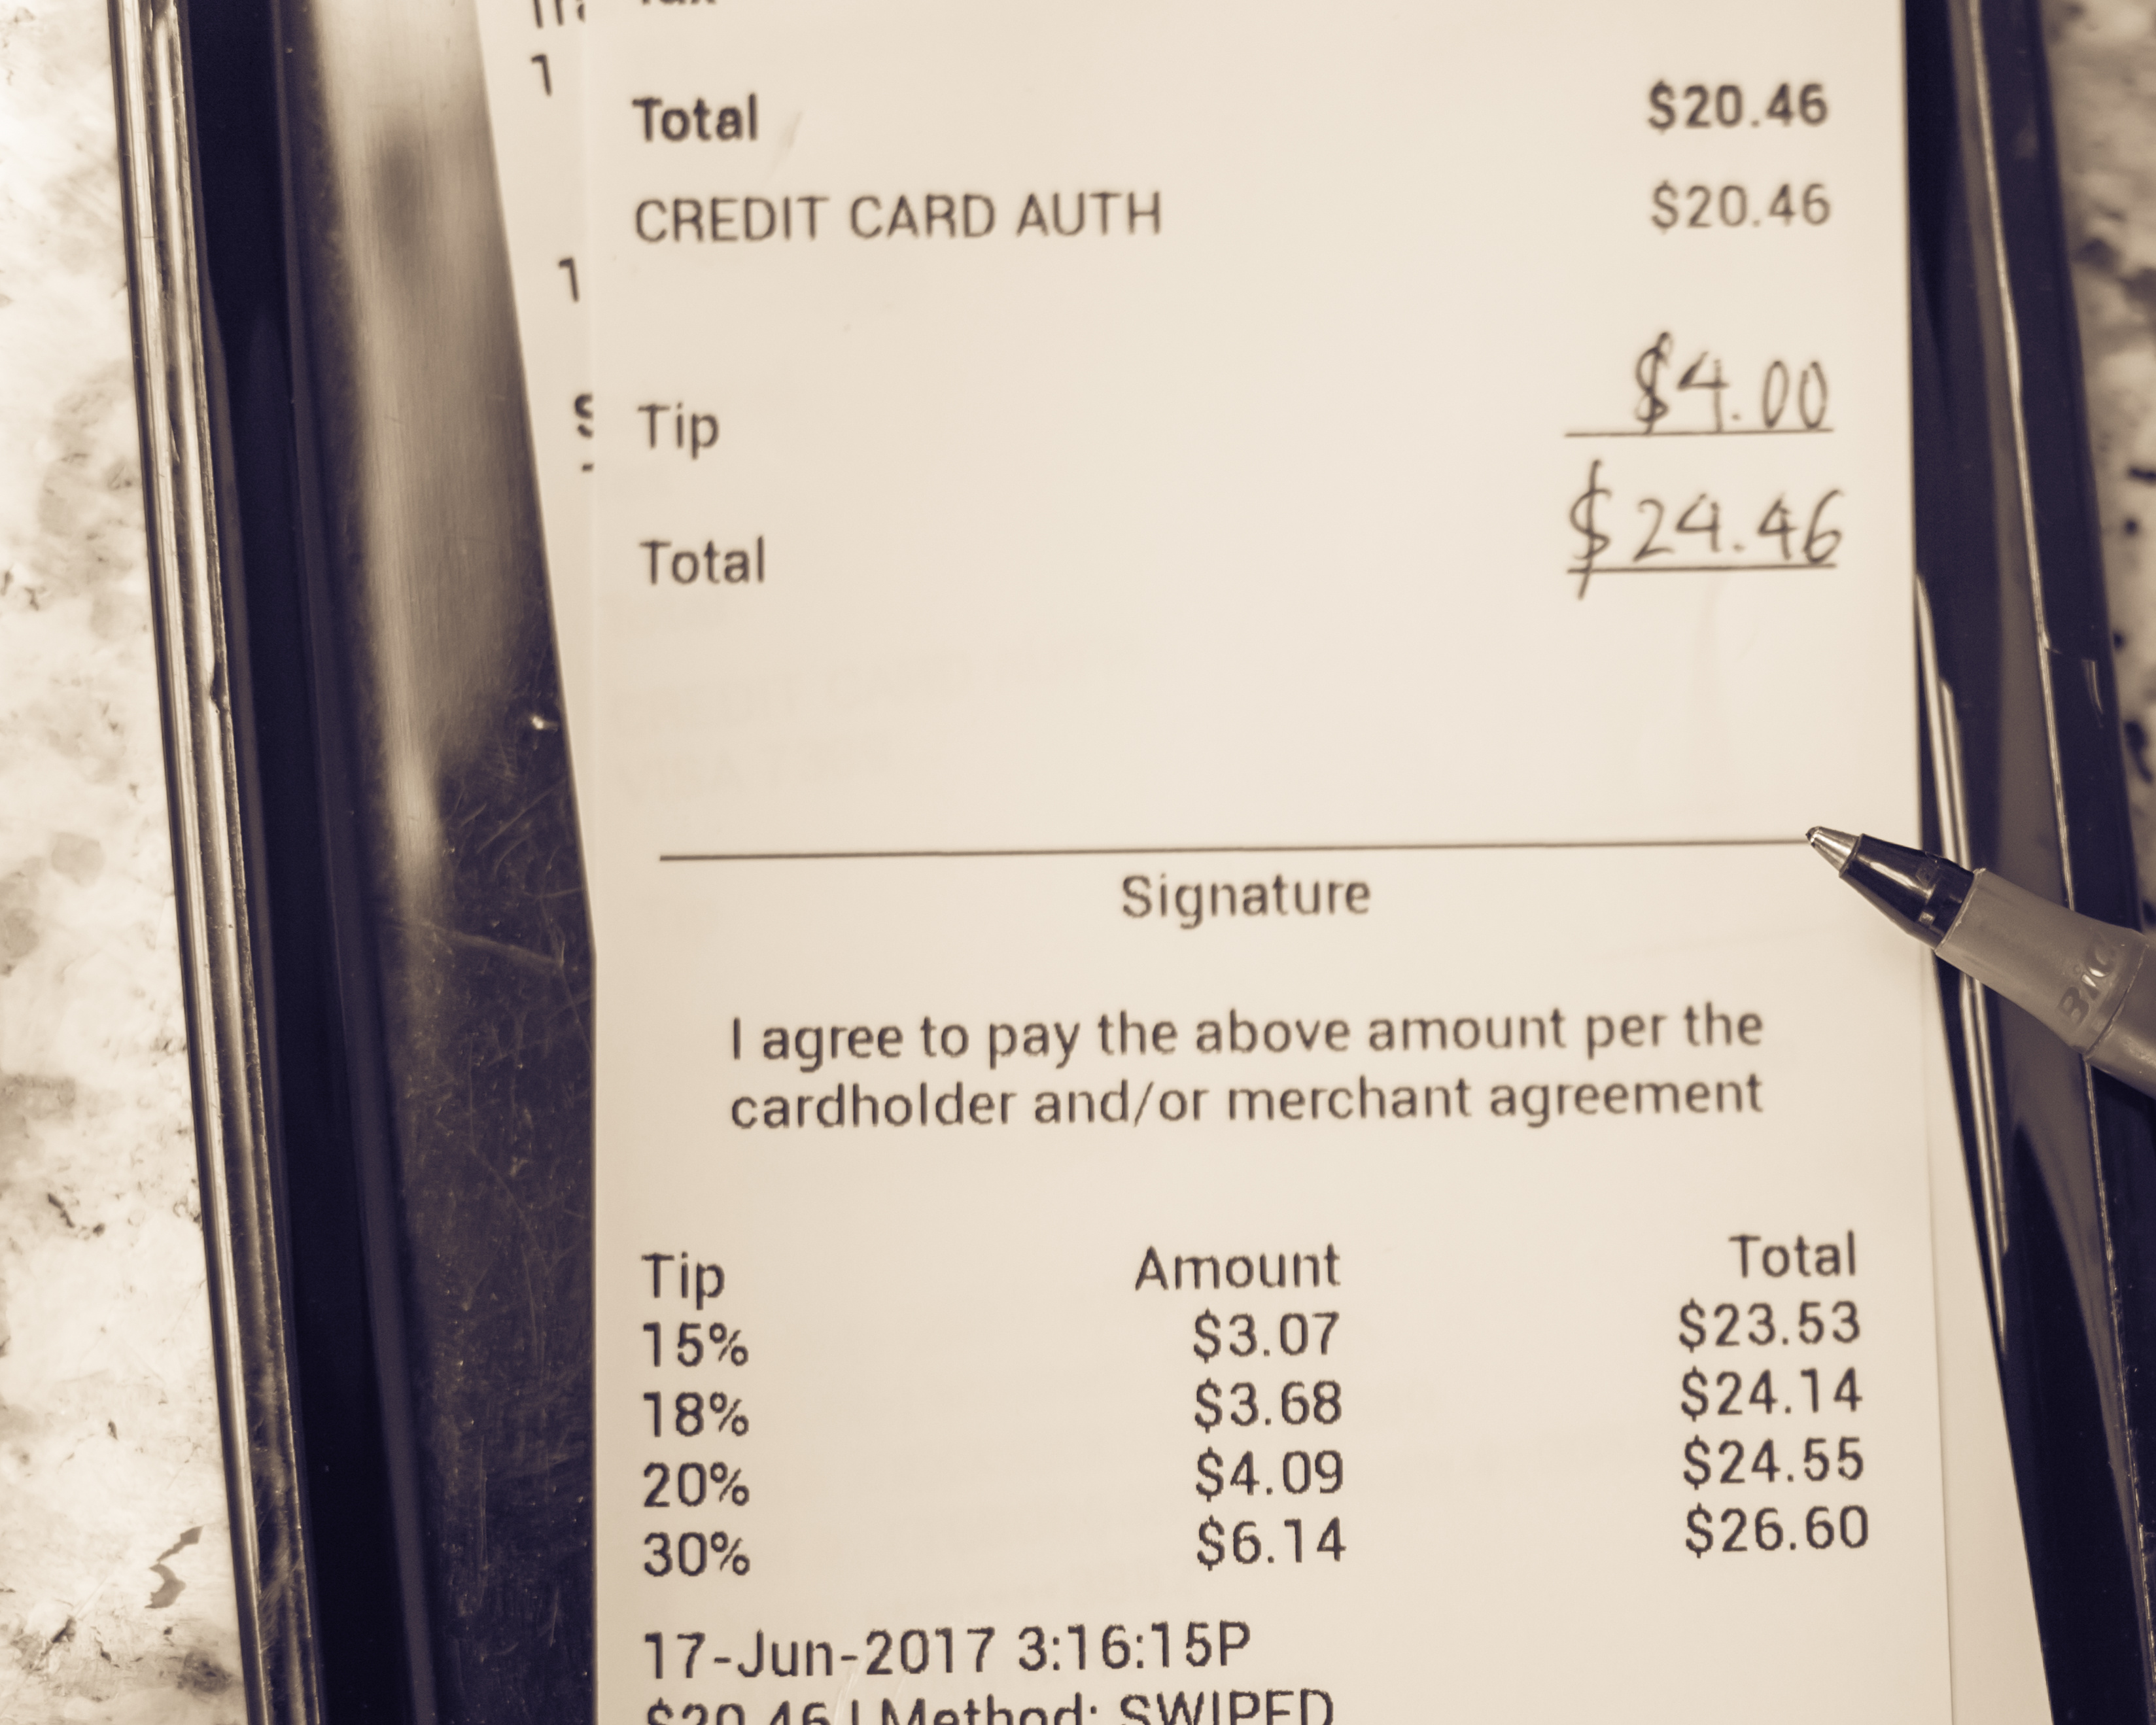 Total $20.46
CREDIT CARD AUTH $20.46
Tip $4.00
Total $24.46
Signature
I agree to pay the above amount per the
cardholder and/or merchant agreement
Tip Amount Total
15% $3.07 $23.53
18% $3.68 $24.14
20% $4.09 $24.55
30% $6.14 $26.60
17-Jun-2017 3:16:15P
$20.46 | Method: SWIPED
BIC